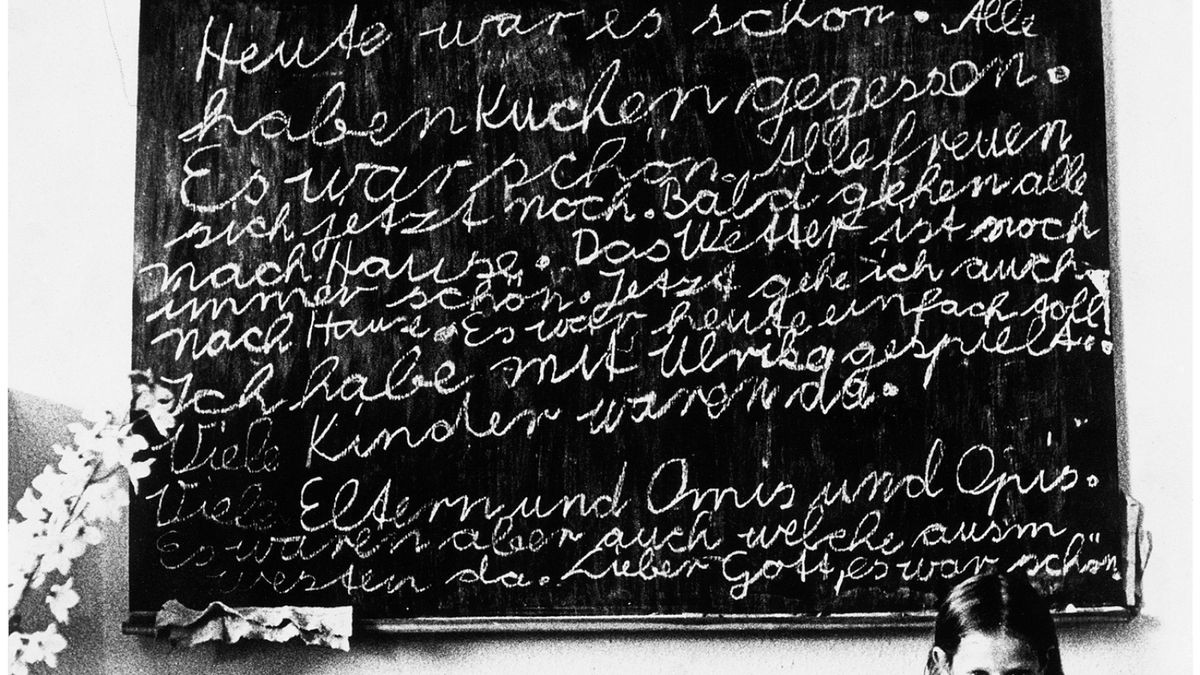 Heute war es schön. Alle
haben Kuchen gegessen.
Es war schön. Alle freuen
sich jetzt noch. Bald gehen alle
nach Hause. Das Wetter ist noch
immer schön. Jetzt gehe ich auch
nach Hause. Es war heute einfach toll!
Ich habe mit Ulrike gespielt.
Viele Kinder waren da.
Viele Eltern und Omis und Opis.
Es waren aber auch welche ausm
westen da. Lieber Gott, es war schön